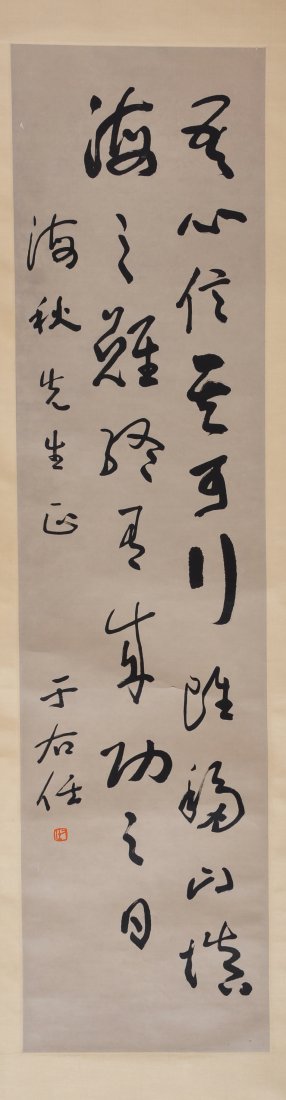 吾心信其可行雖移山填
海之難終有成功之日
海秋先生正
于右任